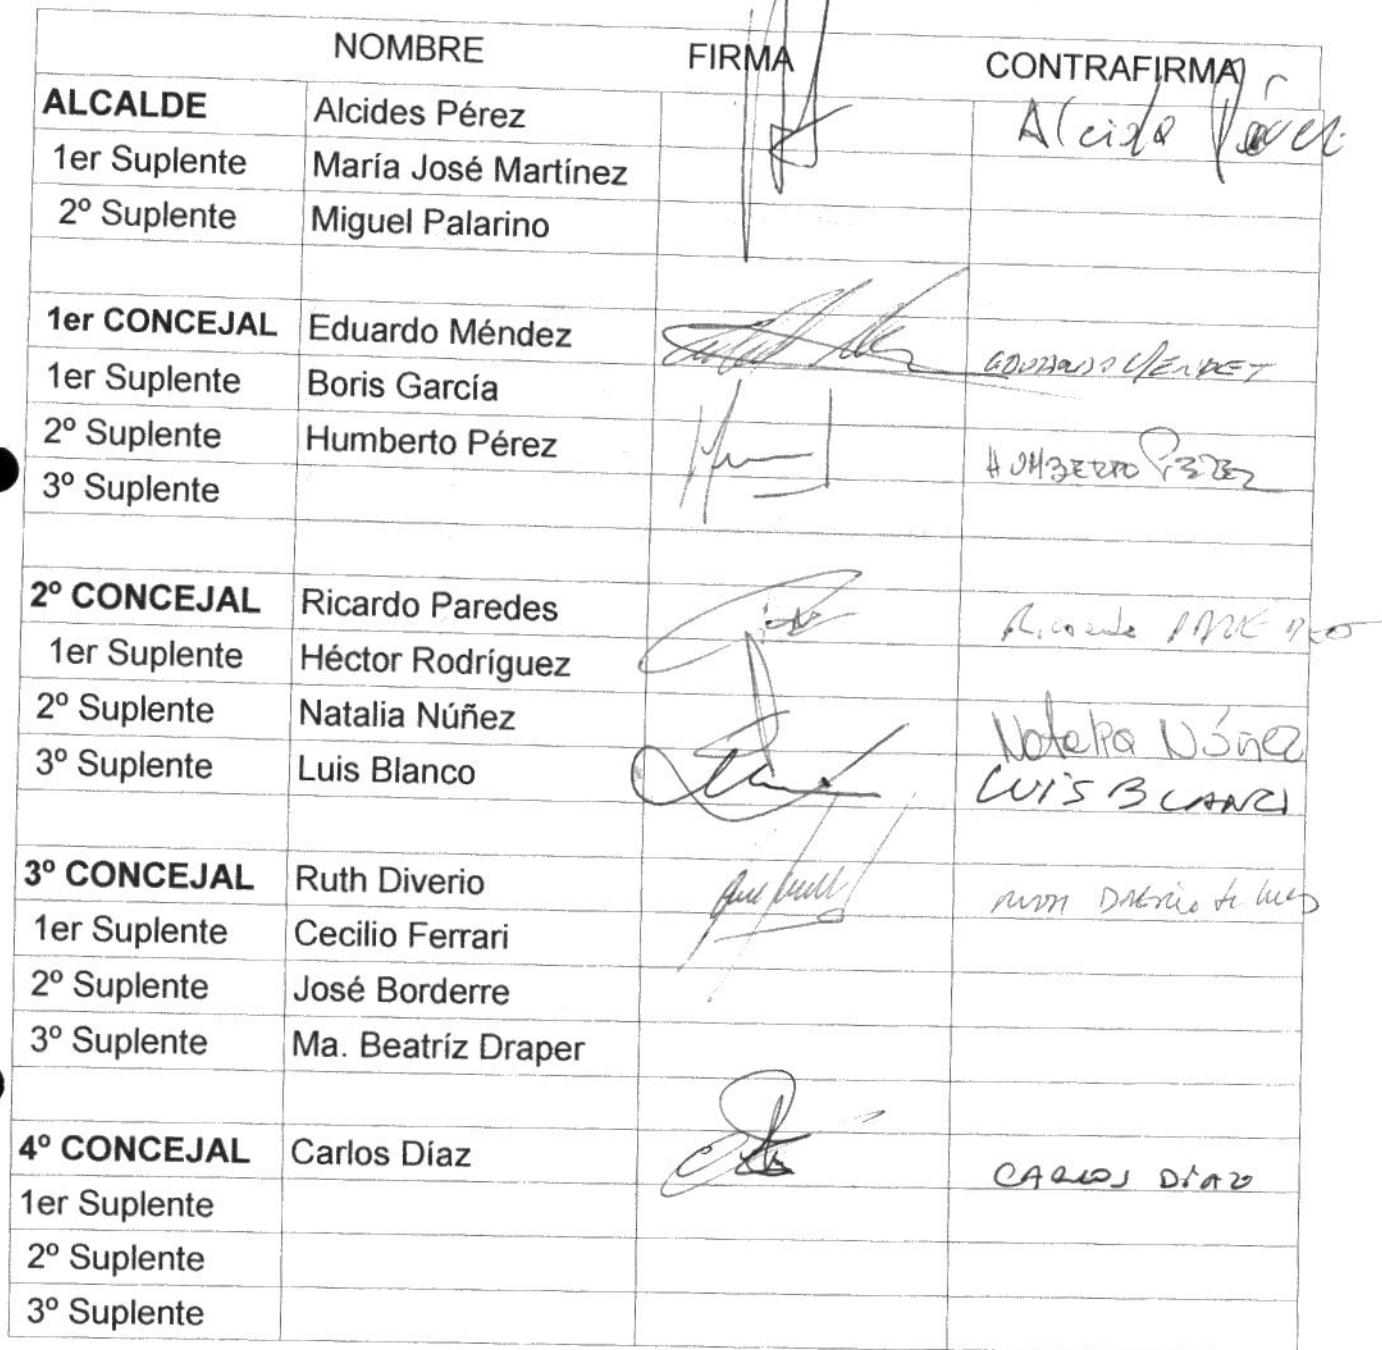 NOMBRE FIRMA CONTRAFIRMA
ALCALDE Alcides Pérez Alcides Pérez
1er Suplente María José Martínez
2º Suplente Miguel Palarino
1er CONCEJAL Eduardo Méndez EDUARDO MÉNDEZ
1er Suplente Boris García
2º Suplente Humberto Pérez HUMBERTO PÉREZ
3º Suplente
2º CONCEJAL Ricardo Paredes Ricardo PAREDES
1er Suplente Héctor Rodríguez
2º Suplente Natalia Núñez Natalia Núñez
3º Suplente Luis Blanco LUIS BLANCO
3º CONCEJAL Ruth Diverio RUTH DIVERIO
1er Suplente Cecilio Ferrari
2º Suplente José Borderre
3º Suplente Ma. Beatríz Draper
4º CONCEJAL Carlos Díaz CARLOS DÍAZ
1er Suplente
2º Suplente
3º Suplente